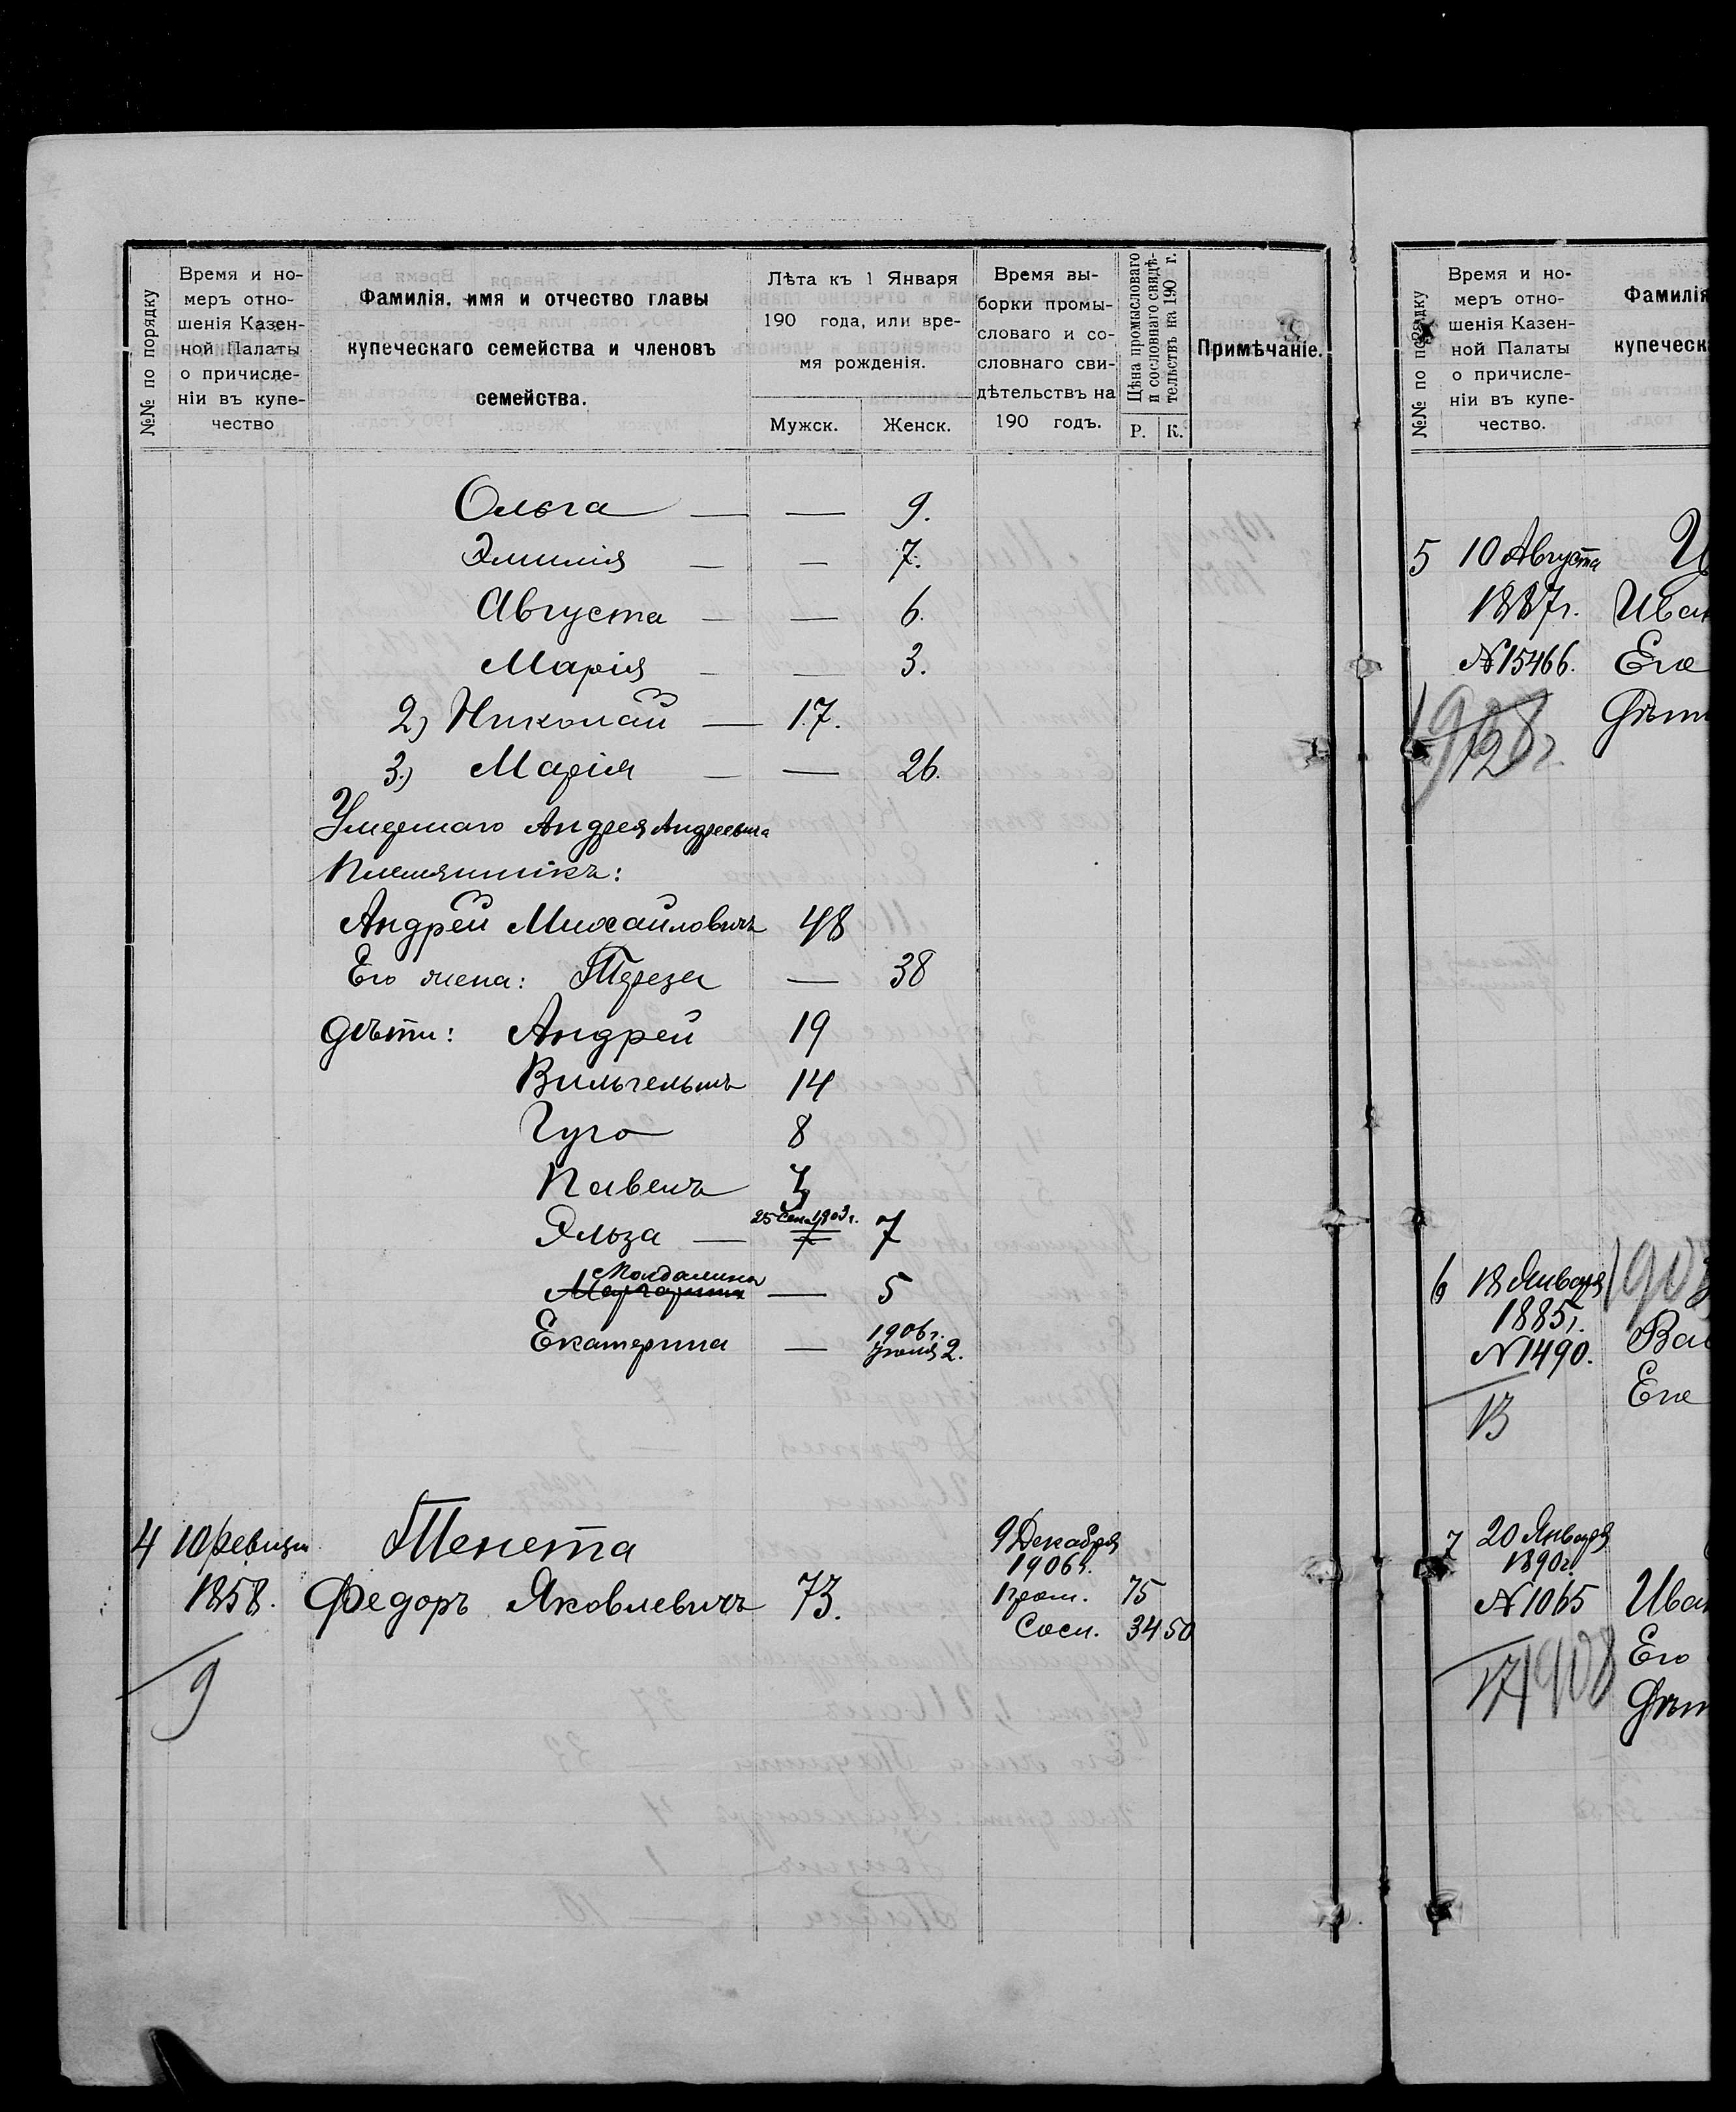 №№ по порядку
Время и но-
меръ отно-
шенія Казен-
ной Палаты
о причисле-
ніи въ купе-
чество
Фамилія, имя и отчество главы
купеческаго семейства и членовъ
семейства.
Лѣта къ 1 Января
190 года, или вре-
мя рожденія.
Мужск. Женск.
Время вы-
борки промы-
словаго и со-
словнаго сви-
дѣтельствъ на
190 годъ.
Цѣна промысловаго
и сословнаго свидѣ-
тельствъ на 190 г.
Р. К.
Примѣчаніе.
Ольга — — 9.
Эмилія — — 7.
Августа — — 6.
Марія — — 3.
2) Николай — 17.
3) Марія — — 26.
Умершаго Андрея Андреевича
племянникъ:
Андрей Михайловичъ 48
Его жена: Тереза — 38
Дѣти: Андрей 19
Вильгельмъ 14
Гуго 8
Павелъ
25 Сен. 1903 г.
Эльза — 7 7
Магдалина
Маргарита — 5
Екатерина — 1906 г.
2.
4 10 ревизіи Тенета 9 Декабря
1906 г.
1858. Федоръ Яковлевичъ 73. пром. 75
Сосл. 34 50
9
№№ по порядку
Время и но-
меръ отно-
шенія Казен-
ной Палаты
о причисле-
ніи въ купе-
чество.
Фамилія
купеческ
5 10 Августа
1887 г. Иван
№ 15466. Его
Дѣти
1908 г.
12
6 18 Января 1908
1885 г.
№ 1490.
Его
13
7 20 Января
1890 г.
№ 1065 Иван
Его
17 1908
Дѣти